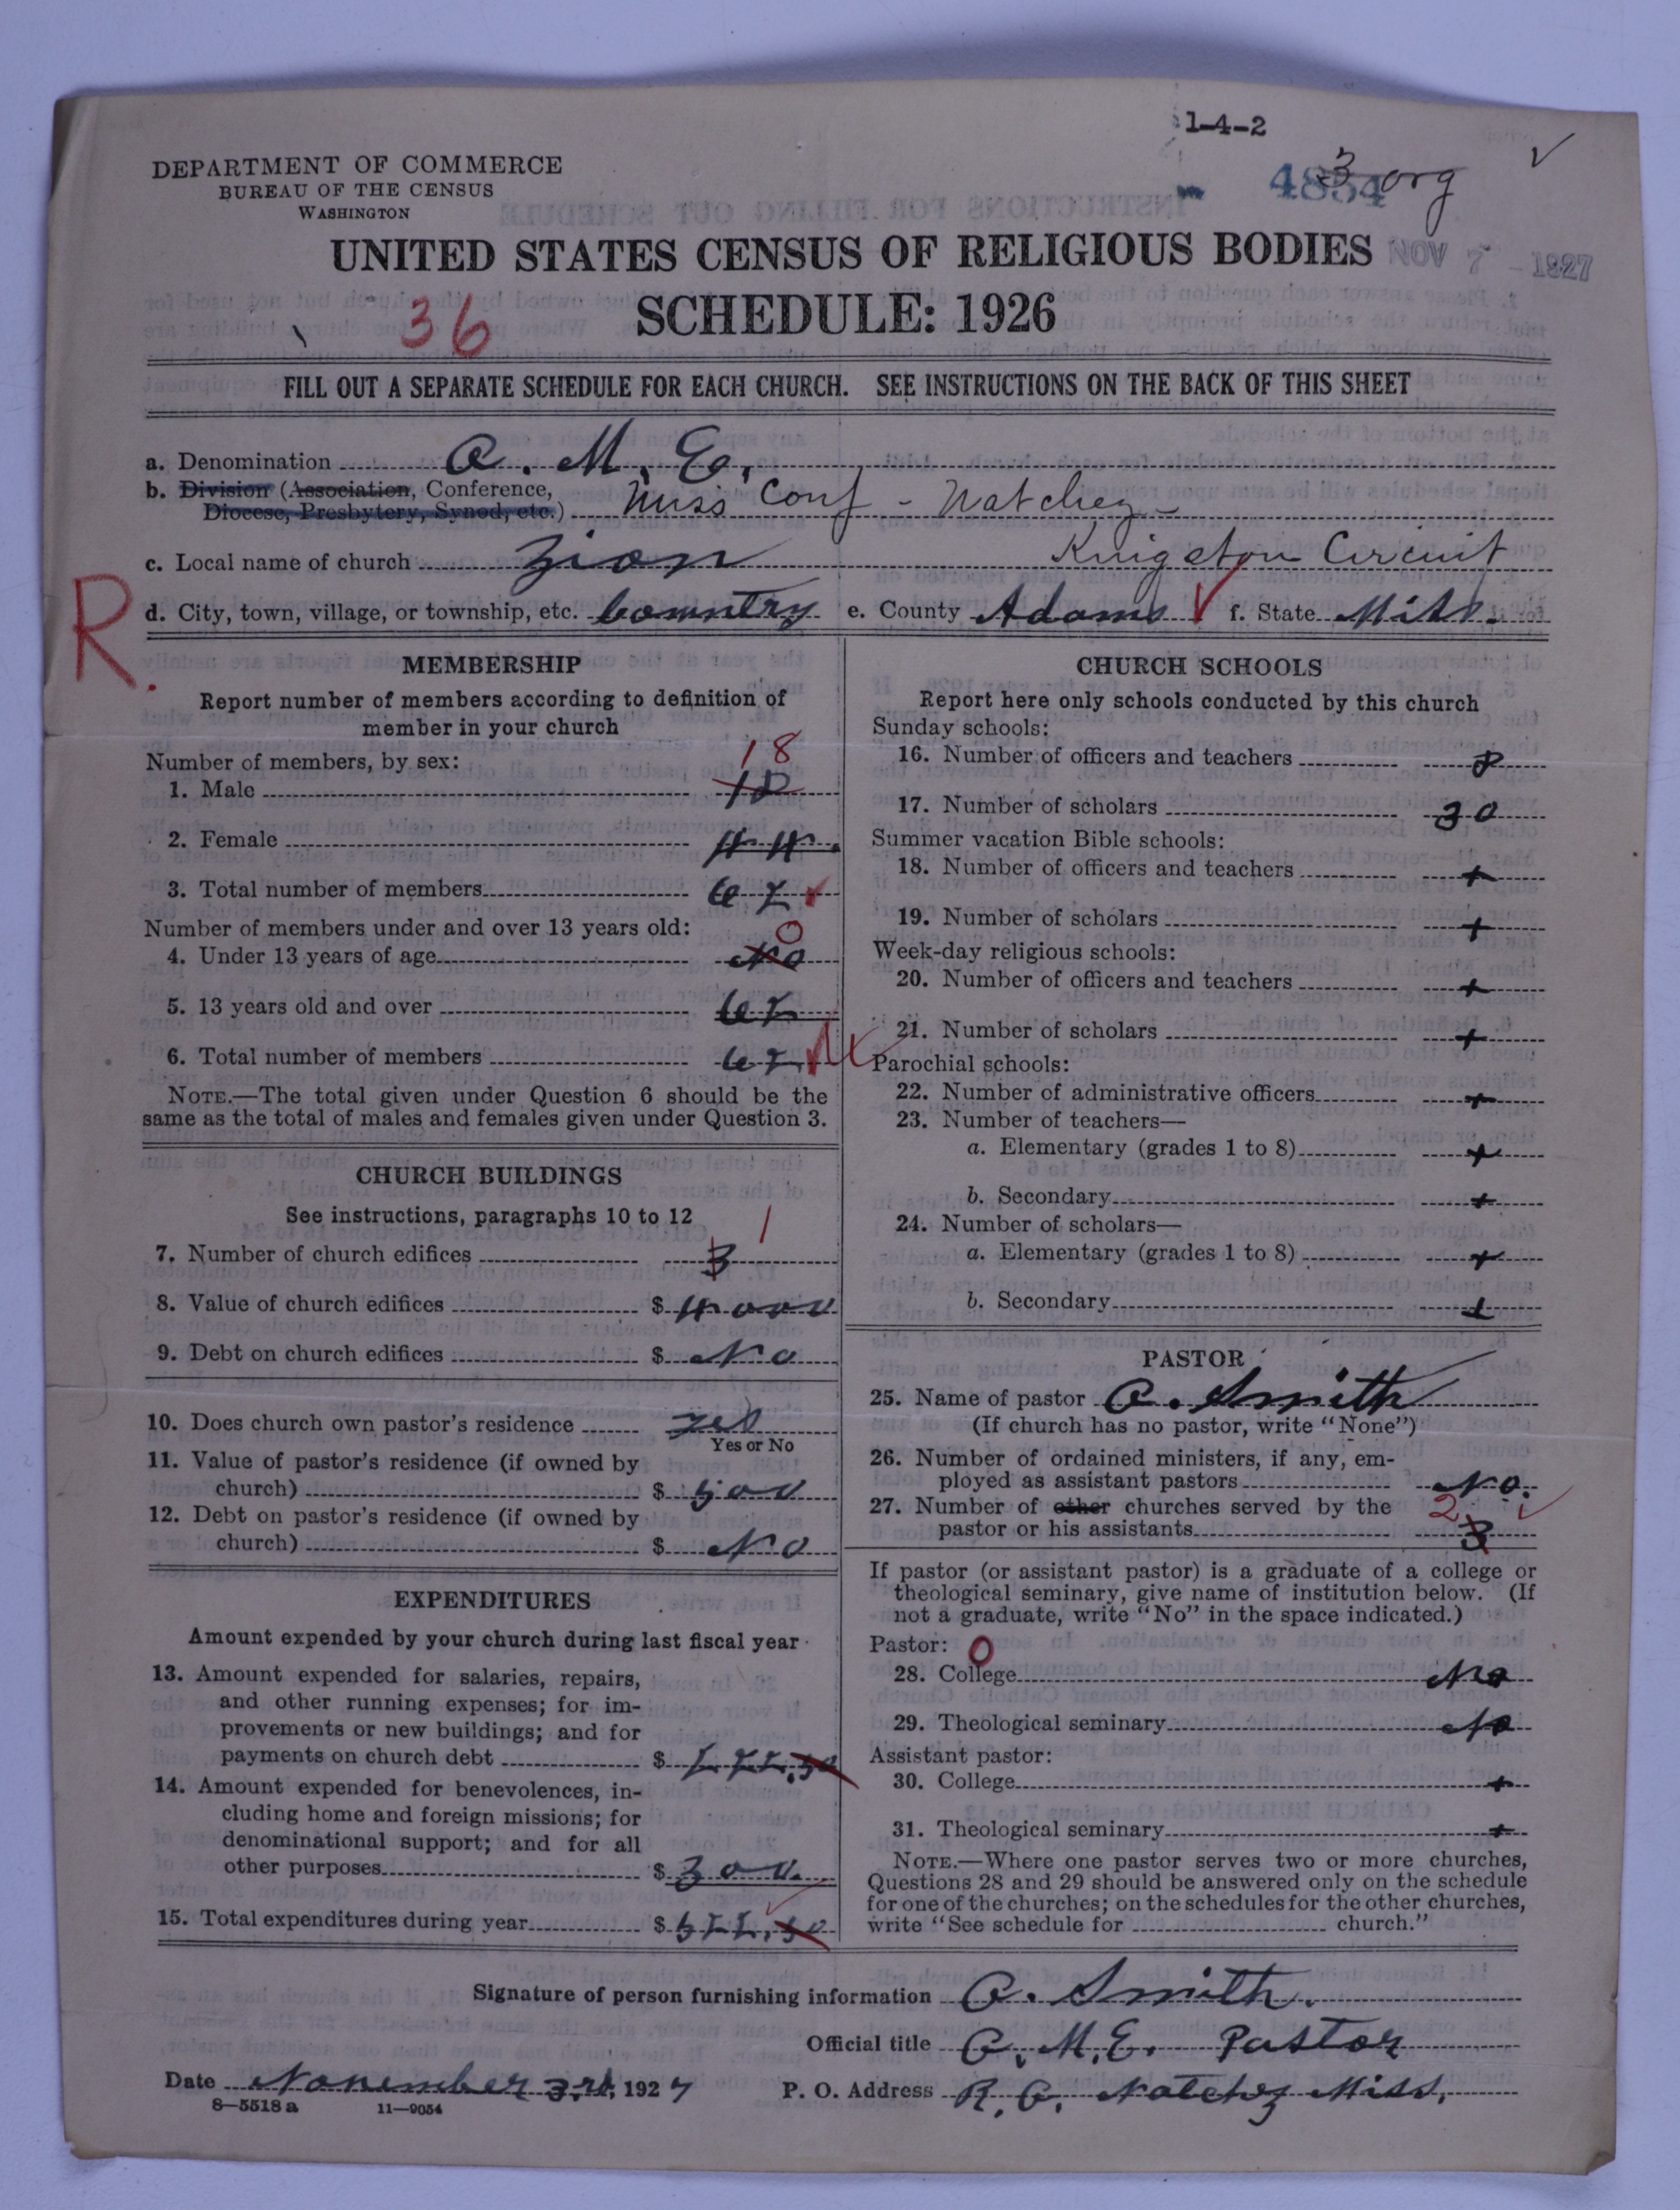 1-4-2
DEPARTMENT OF COMMERCE
BUREAU OF THE CENSUS
WASHINGTON
4854 3 org
UNITED STATES CENSUS OF RELIGIOUS BODIES
NOV 7 - 1927
36
SCHEDULE: 1926
FILL OUT A SEPARATE SCHEDULE FOR EACH CHURCH. SEE INSTRUCTIONS ON THE BACK OF THIS SHEET
a. Denomination A. M. E.
b. Division (Association, Conference,
Diocese, Presbytery, Synod, etc.) Miss Conf - Natchez -
c. Local name of church Zion Kingston Circuit
R.
d. City, town, village, or township, etc. Country e. County Adams f. State Miss.
MEMBERSHIP
Report number of members according to definition of
member in your church
Number of members, by sex:
18
1. Male 18
2. Female 44.
3. Total number of members 62
Number of members under and over 13 years old:
0
4. Under 13 years of age No
5. 13 years old and over 62
6. Total number of members 62
NOTE.—The total given under Question 6 should be the
same as the total of males and females given under Question 3.
CHURCH BUILDINGS
See instructions, paragraphs 10 to 12
1
7. Number of church edifices 3
8. Value of church edifices $ 4000
9. Debt on church edifices $ No
10. Does church own pastor's residence yes
Yes or No
11. Value of pastor's residence (if owned by
church) $ 500
12. Debt on pastor's residence (if owned by
church) $ No
EXPENDITURES
Amount expended by your church during last fiscal year
13. Amount expended for salaries, repairs,
and other running expenses; for im-
provements or new buildings; and for
payments on church debt $ 222.50
14. Amount expended for benevolences, in-
cluding home and foreign missions; for
denominational support; and for all
other purposes $ 300.
15. Total expenditures during year $ 522.50
CHURCH SCHOOLS
Report here only schools conducted by this church
Sunday schools:
16. Number of officers and teachers 8
17. Number of scholars 30
Summer vacation Bible schools:
18. Number of officers and teachers +
19. Number of scholars +
Week-day religious schools:
20. Number of officers and teachers +
21. Number of scholars +
Parochial schools:
22. Number of administrative officers +
23. Number of teachers—
a. Elementary (grades 1 to 8) +
b. Secondary +
24. Number of scholars—
a. Elementary (grades 1 to 8) +
b. Secondary +
PASTOR
25. Name of pastor A. Smith
(If church has no pastor, write "None")
26. Number of ordained ministers, if any, em-
ployed as assistant pastors No.
27. Number of other churches served by the
2
pastor or his assistants 3
If pastor (or assistant pastor) is a graduate of a college or
theological seminary, give name of institution below. (If
not a graduate, write "No" in the space indicated.)
Pastor: 0
28. College No
29. Theological seminary No
Assistant pastor:
30. College +
31. Theological seminary +
NOTE.—Where one pastor serves two or more churches,
Questions 28 and 29 should be answered only on the schedule
for one of the churches; on the schedules for the other churches,
write "See schedule for church."
Signature of person furnishing information A. Smith.
Official title A. M. E. Pastor
Date November 3rd, 1927 P. O. Address Natchez Miss.
8—5518a 11—9054